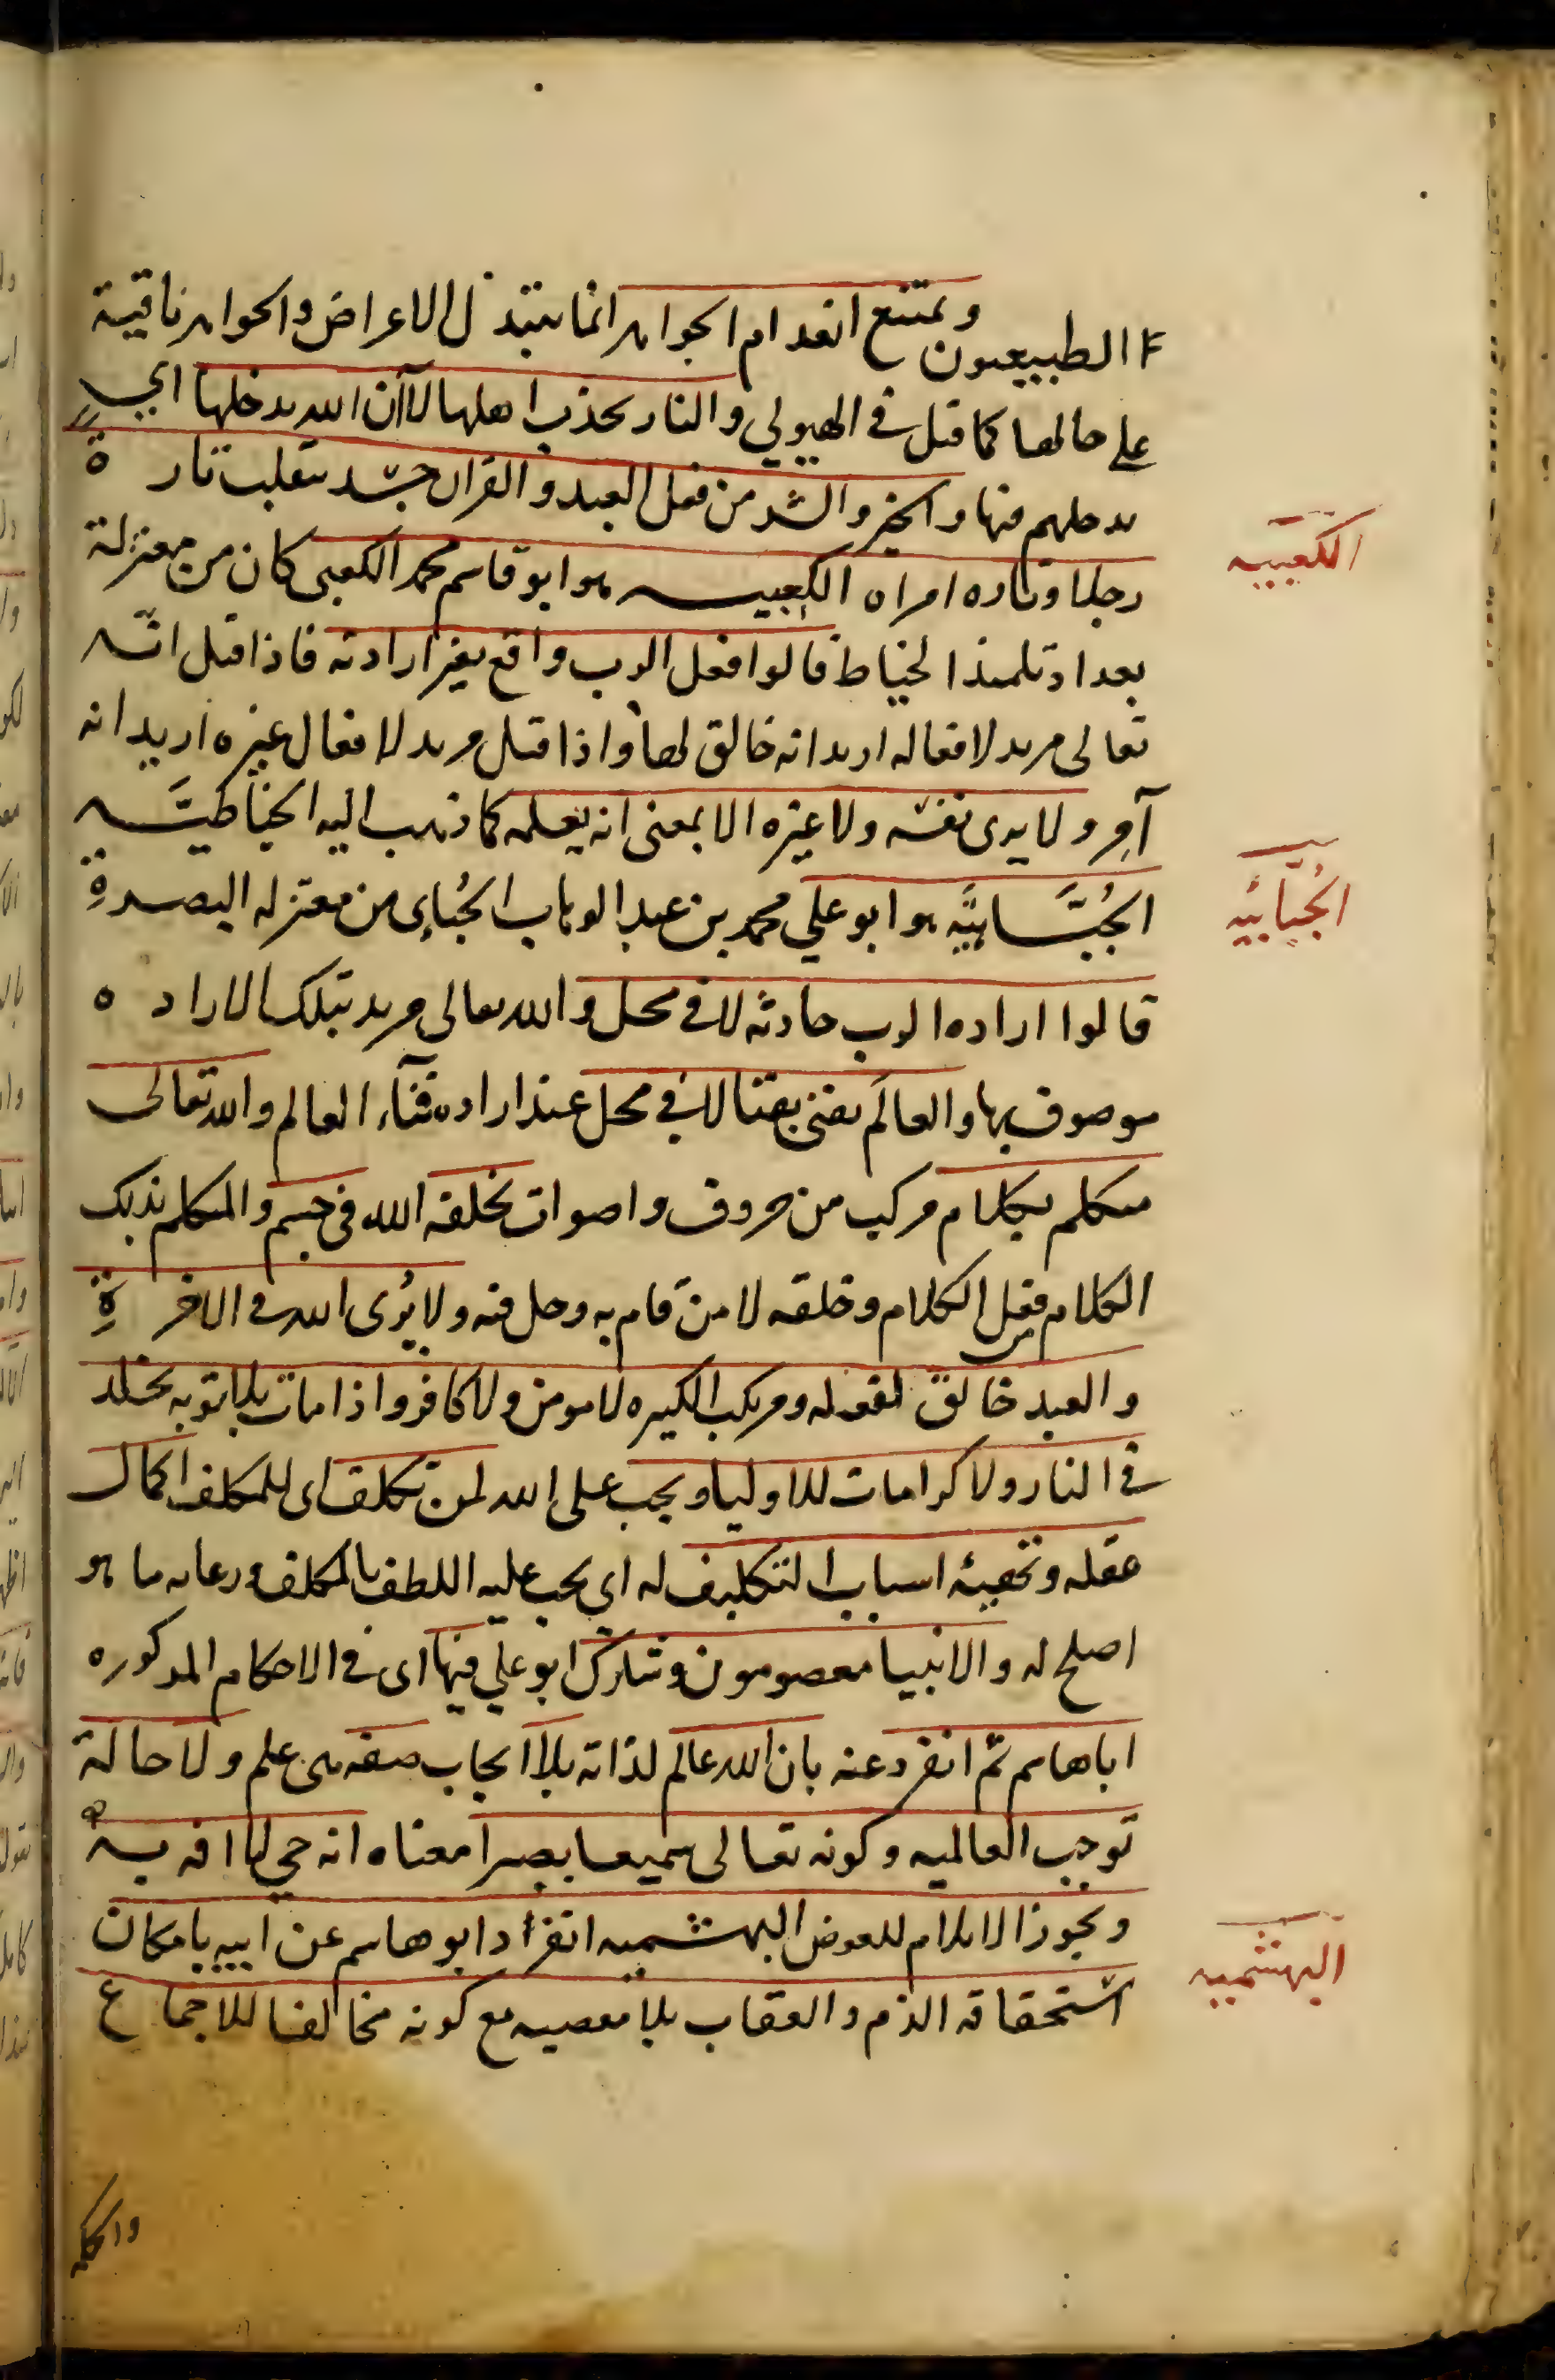 الطبيعيون ويمتنع انعدام الجواهر انما يتبدل الاعراض والجواهر باقية
على حالها كما قيل في الهيولي والنار تجذب اهلها لا ان الله يدخلها اي
يدخلهم فيها والخير والشر من فعل العبد والقران جسد ينقلب تارة
رجلا وتاره امراه الكعبيه هو ابو قاسم محمد الكعبى كان من معتزلة
الكعبيه
بغداد تلميذ الخياط قالوا فعل الرب واقع بغير ارادته فاذا قيل انه
تعالى مريد لافعاله اريد انه خالق لها واذا قيل مريد لافعال غيره اريد انه
آمر ولا يرى نفسه ولا غيره الا بمعنى انه يعلمه كما ذهب اليه الخياطيَّه
الجُبَّائيَّه هو ابو علي محمد بن عبد الوهاب الجُبَّاءى من معتزله البصرةِ
الجُبَّائيه
قالوا اراده الرب حادثه لا في محل والله تعالى مريد بتلك الاراده
موصوف بها والعالَم يفنى بفنا لا في محل عند اراده فنآء العالم والله تعالى
متكلم بكلام مركب من حروف واصوات يخلقه الله فى جسم والمتكلم بذلك
الكلام من فعل الكلام وخلقه لا من قام به وحل فيه ولا يُرى الله في الاخرةِ
والعبد خالق لفعله ومرتكب الكبيره لا مومن ولا كافر واذا مات بلا توبه يخلد
في النار ولا كرامات للاوليا ويجب على الله لمن تكلف اى للمكلف اكمال
عقله وتهيئه اسباب التكليف له اي يجب عليه اللطف بالمكلف ورعايه ما هو
اصلح له والانبيا معصومون وشارك ابو علي فيها اى في الاحكام المذكوره
اباهاشم ثم انفرد عنه بان الله عالم لذاته بلا ايجاب صفه هى علم ولا حالة
توجب العالميه وكونه تعالى سميعا بصيرا معناه انه حي لا افه به
ويجوز الايلام للعوض البهشميه انفرد ابو هاشم عن ابيه بامكان
البهشميه
استحقاق الذم والعقاب بلا معصيه مع كونه مخالفا للاجماع